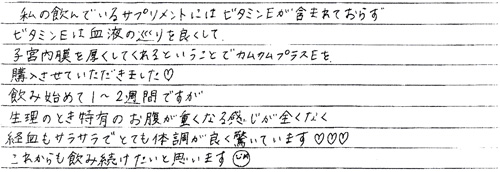 私の飲んでいるサプリメントにはビタミンEが含まれておらず
ビタミンEは血液の巡りを良くして
子宮内膜を厚くしてくれるということでカムカムプラスEを
購入させていただきました♡
飲み始めて1〜2週間ですが
生理のとき特有のお腹が重くなる感じが全くなく
経血もサラサラでとても体調が良く驚いています♡♡♡
これからも飲み続けたいと思います